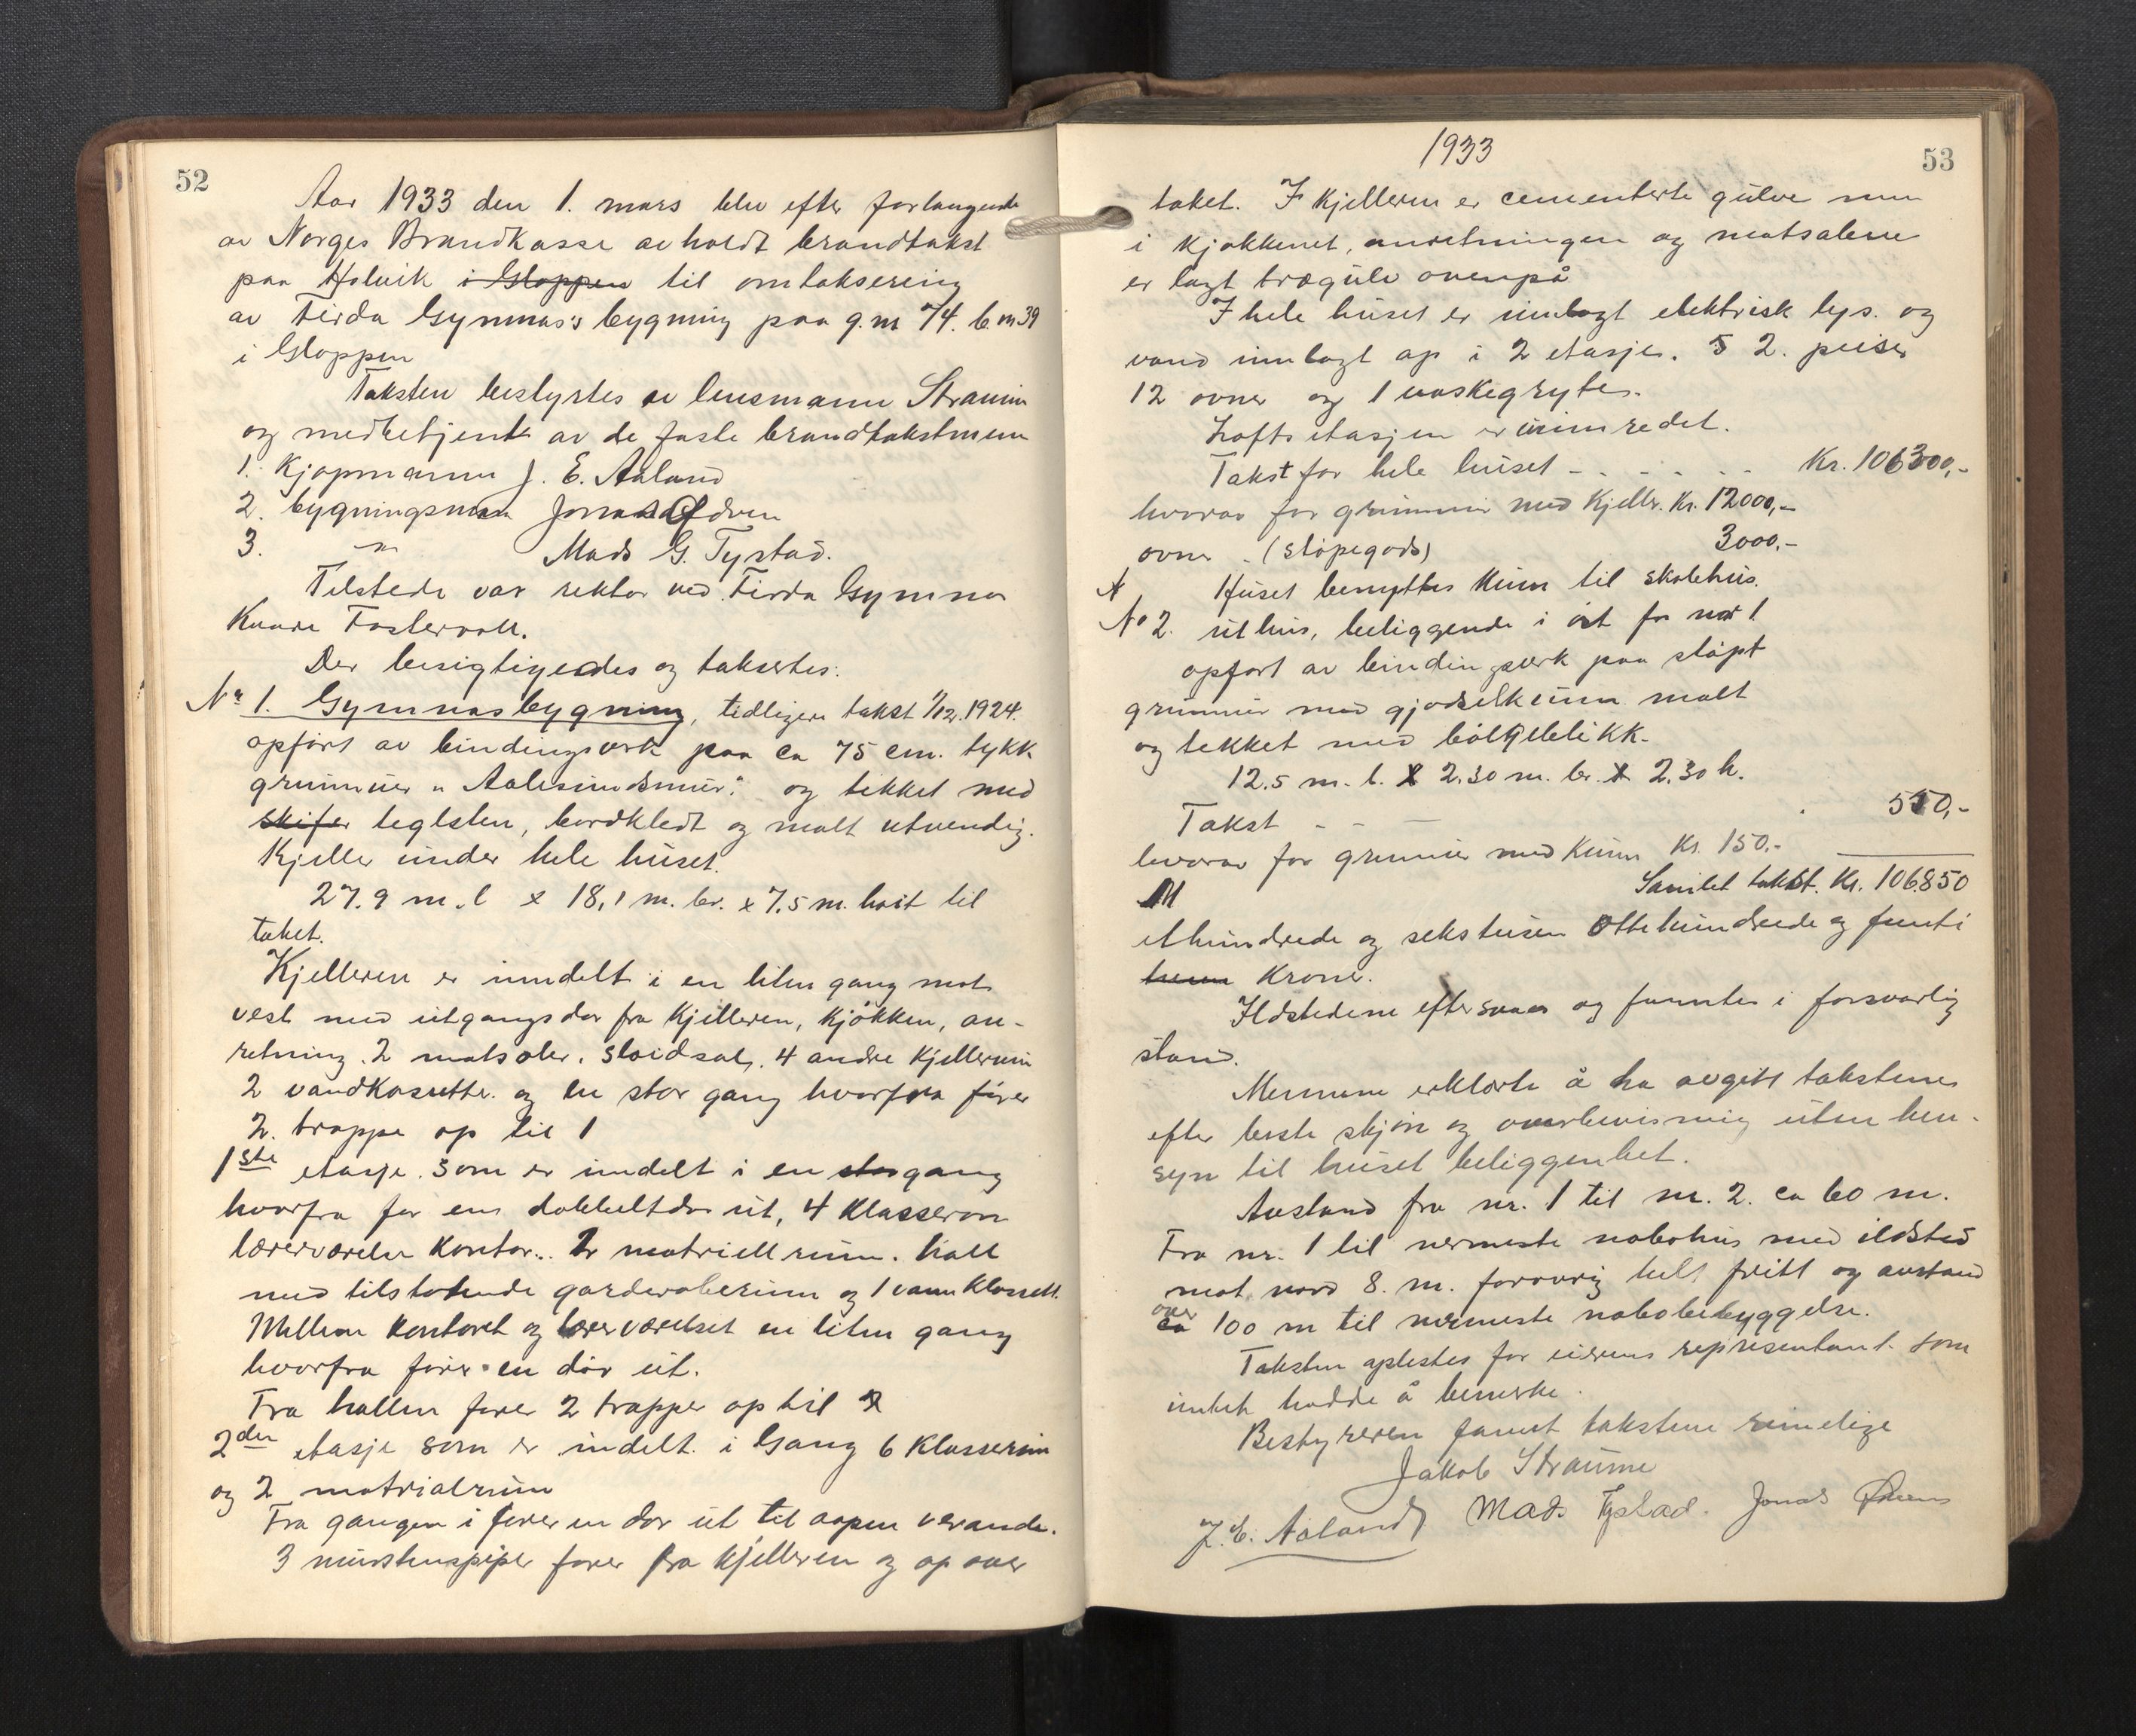 52
Aar 1933 den 1. mars blev efter forlangende
av Norges Brandkasse avholdt brandtakst
paa Holvik i Gloppen til omtaksering
av Firda Gymnas's bygning paa g.nr 74. b.nr 39
i Gloppen
Taksten bestyrtes av lensmann Straume
og medbetjent av de faste brandtakstmenn
1. Kjøpmann J. E. Aaland
2. bygningsmann Jonas Ødven
3. -"- Mads G. Tystad.
Tilstede var rektor ved Firda Gymnas
Kaare Fostervoll.
Der besigtigedes og taksertes:
Nr 1. Gymnasbygning, tidligere takst 1/12. 1924.
opført av bindingsverk paa ca 75 cm. tykk
grunnmur "Aalesundsmur" og tekket med
skifer teglsten, bordkledt og malt utvendig.
Kjeller under hele huset.
27.9 m. l x 18,1 m. br. x 7.5 m. høit til
taket.
Kjelleren er inndelt i en liten gang mot
vest med utgangsdør fra kjelleren, kjøkken, an-
retning. 2 matsaler. sløidsal. 4 andre kjellerrum
2 vandklosetter. og en stor gang hvorfra fører
2. trapper op til 1
1ste etasje. som er inndelt i en stor gang
hvorfra før en dobbeltdør ut, 4 klasserom
lærerværelse kontor.. 2 matriellrum. hall
med tilstøtende garderoberum og 1 vannklosett.
Mellem kontoret og lærerværelset en liten gang
hvorfra fører en dør ut.
Fra hallen fører 2 trapper op til 2
2den etasje som er indelt i Gang 6 klasserum
og 2 matrialrum
Fra gangen i fører en dør ut til aapen veranda.
3 murstenspiper fører fra kjelleren og op over
1933
53
taket. I Kjelleren er cementerte gulve men
i kjøkkenet, anretningen og matsalene
er lagt trægulv ovenpå
I hele huset er innlagt elektrisk lys. og
vand innlagt op i 2 etasje. 2. peiser
12 ovner og 1 vaskegryte.
Loftsetasjen er uinnredet.
Takst for hele huset - - - - - - Kr. 106300,-
hvorav for grunnmur med Kjeller. Kr. 12000,-
ovner. (støpegods) 3000,-
Huset benyttes kunn til skolehus.
No 2. uthus, beliggende i øst for nr 1
opført av bindingsverk paa støpt
grunnmur med gjødselkum malt
og tekket med bølgeblikk.
12.5 m. l. x 2.30 m. br. x 2.30 h.
Takst - - - 550,-
hvorav for grunmur med kum Kr. 150.-
Samlet takst. Kr. 106850
ethundrede og sekstusen ottehundrede og femti
kroner.
Ildstedene eftersaaes og funntes i forsvarlig
stand.
Mennene erklærte å ha avgitt takstene
efter beste skjøn og overbevisning uten hen-
syn til huset beliggenhet.
Avstand fra nr. 1 til nr. 2. ca 60 m.
Fra nr. 1 til nermeste nabohus med ildsted
mot nord 8. m. forøvrig helt fritt og avstand
over
ca 100 m til nærmeste nabobebyggelse.
Taksten oplestes for eierens representant som
inntet hadde å bemerke.
Bestyreren fannt takstene rimelige
Jakob Straume
J. E. Aaland Mads Tystad. Jonas Ødven